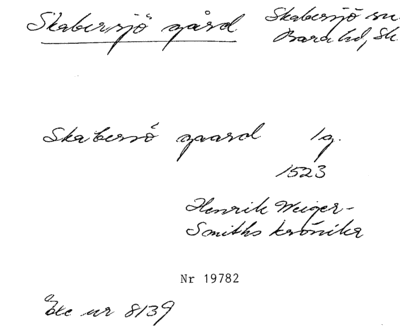 Skabersjö gård
Skabersjö sn
Bara hd, Sk.
Skabersiö gaard 1g.
1523
Henrik Weiger-
Smiths krönika
Nr 19782
Exc nr 8139